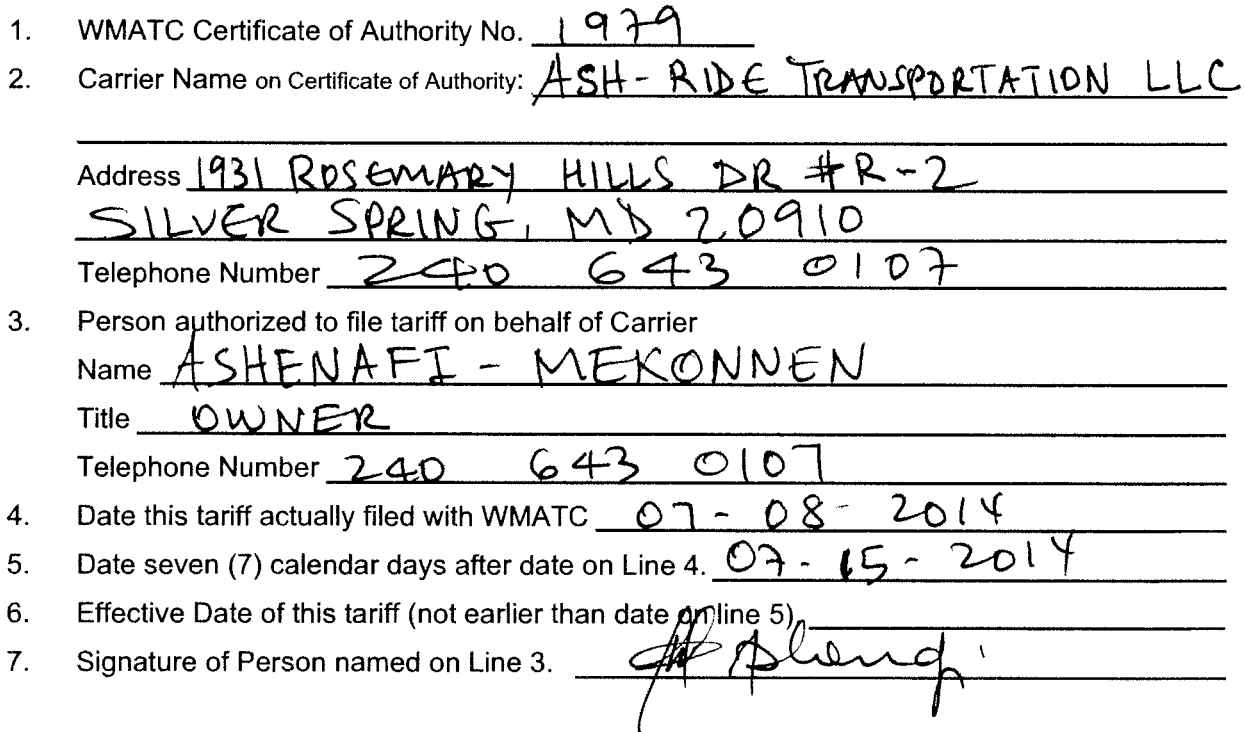 1. WMATC Certificate of Authority No. 1979
2. Carrier Name on Certificate of Authority: ASH-RIDE TRANSPORTATION LLC
Address 1931 ROSEMARY HILLS DR #R-2
SILVER SPRING, MD 20910
Telephone Number 240 643 0107
3. Person authorized to file tariff on behalf of Carrier
Name ASHENAFI - MEKONNEN
Title OWNER
Telephone Number 240 643 0107
4. Date this tariff actually filed with WMATC 07-08-2014
5. Date seven (7) calendar days after date on Line 4. 07-15-2014
6. Effective Date of this tariff (not earlier than date on line 5)
7. Signature of Person named on Line 3.